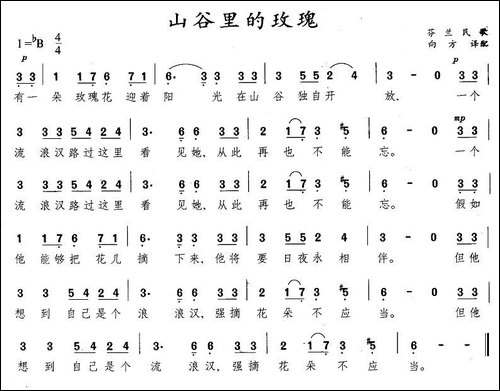 山谷里的玫瑰
1=♭B 4/4 芬兰民歌
向方 译配
p p
3 3 | 1 1 7 6 7 1 | 6· 3 3 | 3 5 5 4 2 4 | 3 - 0 3 3 |
有一 朵 玫瑰花 迎着 阳 光 在山谷 独自开 放, 一个
mp
3 3 5 4 5 2 4 | 3· 6 6 3 3 | 2 1 7 3 #5 | 6 - 0 3 3 |
流 浪汉路过这里 看 见她,从此 再 也 不 能 忘。 一个
3 3 5 4 5 2 4 | 3· 6 6 3 3 | 2 1 7 3 #5 | 6 - 0 3 3 |
流 浪汉路过这里 看 见她,从此 再 也 不 能 忘。 假如
1 1 7 6 7 1 | 6· 3 3 3 3 | 3 5 5 2 4 | 3 - 0 3 3 |
他 能够把 花儿 摘 下来,他将 要 日夜永 相 伴。 但他
3 3 5 4 2 4 | 3· 6 6 3 3 | 2 1 7 3 #5 | 6 - 0 3 3 |
想 到 自己是个 浪 浪汉,强摘 花 朵 不 应 当。 但他
3 3 5 4 2 4 | 3· 6 6 3 3 | 2 1 7 3 #5 | 6 - 0
想 到 自己是个 流 浪汉,强摘 花 朵 不 应 当。